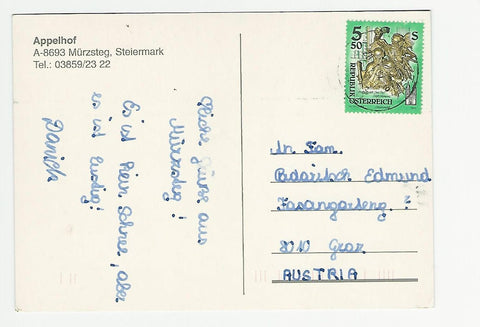 Appelhof
A-8693 Mürzsteg, Steiermark
Tel.: 03859/23 22
Liebe Grüße aus
Mürzsteg!
Es ist kein Schnee, aber
es ist lustig!
5 50 S
REPUBLIK ÖSTERREICH
An Fam.
Edmund
Fasangarteng.
8010 Graz
AUSTRIA